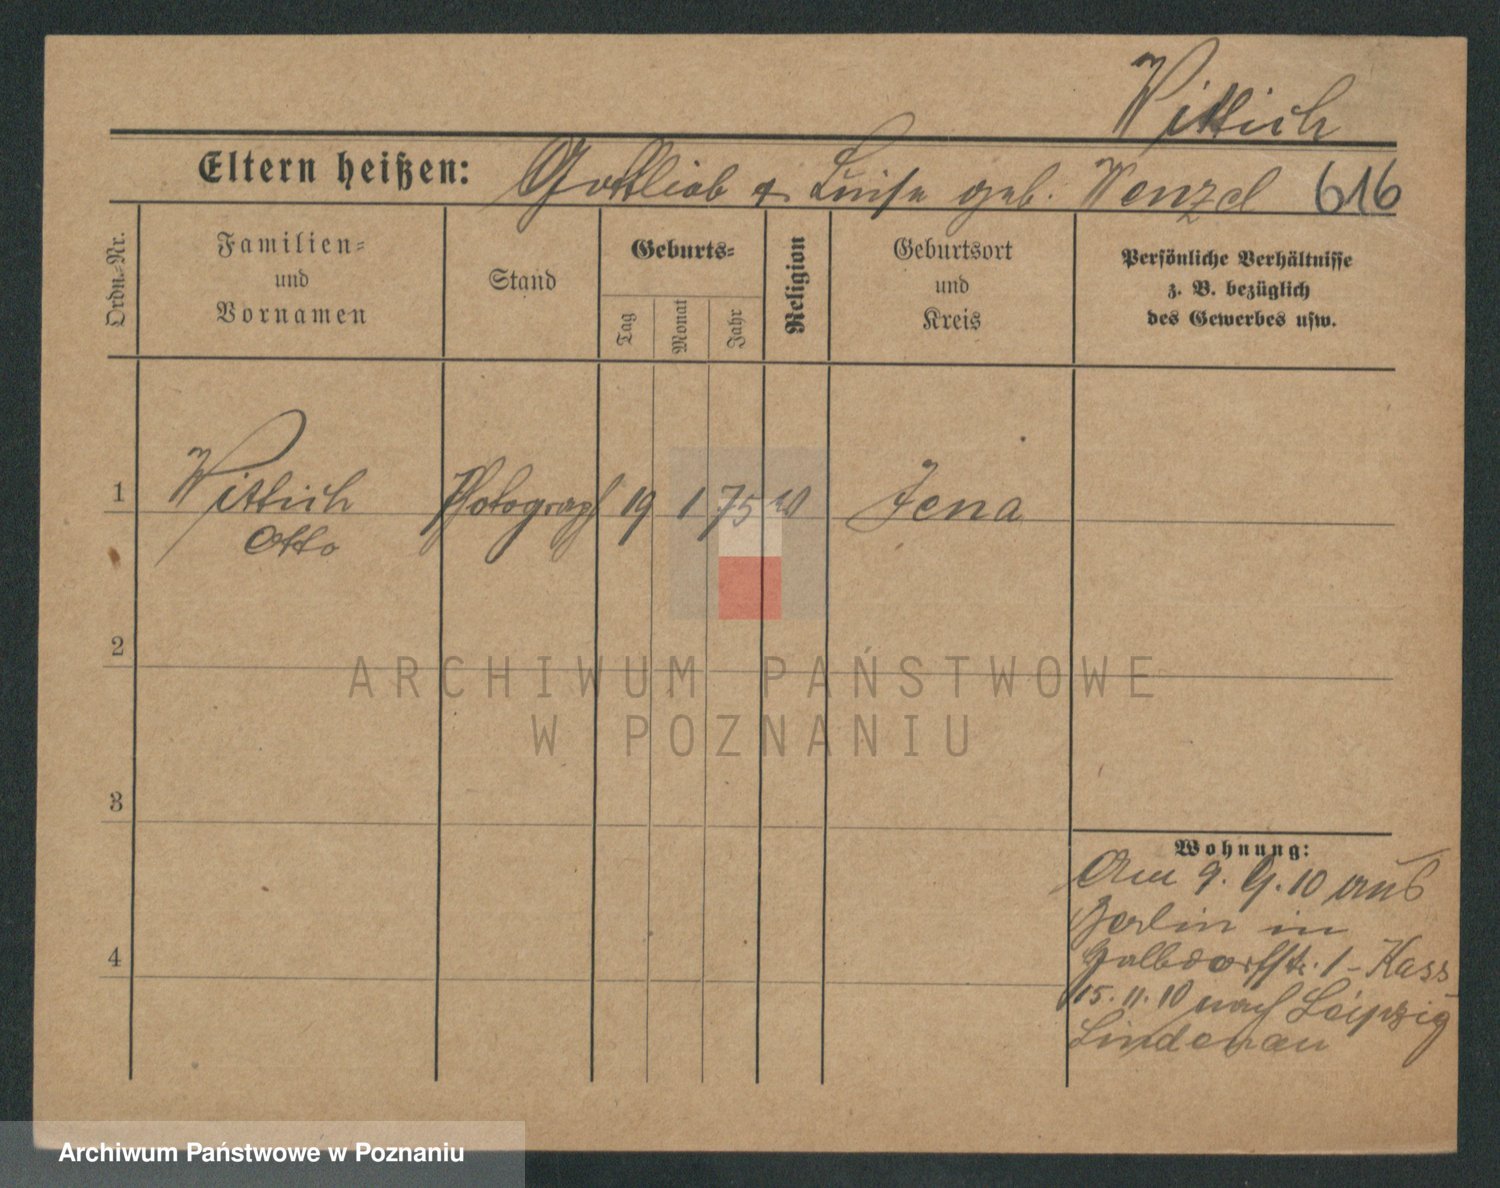 Wittich
Eltern heißen: Gottlieb & Luise geb. Wenzel 616
Ordn.-Nr.
Familien-
und
Vornamen
Stand
Geburts-
Tag
Monat
Jahr
Religion
Geburtsort
und
Kreis
Persönliche Verhältnisse
z. B. bezüglich
des Gewerbes usw.
1 Wittich Photograph 19 1 75 Jena
Otto
2
ARCHIWUM PAŃSTWOWE
W POZNANIU
3
4
Wohnung:
Am 9. 9. 10 aus
Berlin in
1 - Kass
15. 11. 10 nach Leipzig
Lindenau
Archiwum Państwowe w Poznaniu